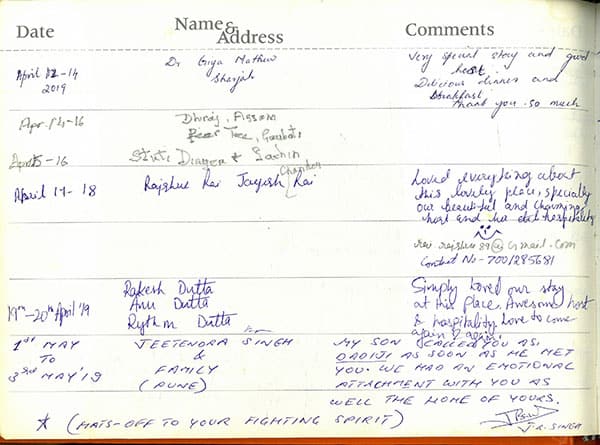 Date Name & Address Comments
April 12-14 Dr Griya Mathew Very special stay and good
2019 Sharjah host.
Delicious dinner and
Breakfast.
Thank you so much
Apr 14-16 Dhiraj, Assam
Tree, Guwahati
April 5-16 Stuti Dingra & Sachin
Chandra
April 17-18 Rajshree Rai Jayesh Rai Loved everything about
this lovely place, specially
our beautiful and charming
host and her hospitality
rai.rajshree89@gmail.com
Contact No - 7001285681
19th-20th April '19 Rakesh Dutta Simply loved our stay
Anu Dutta at this place. Awesome host
Rythm Dutta & hospitality. Love to come
again & again.
1ST MAY JEETENDRA SINGH MY SON CALLED YOU AS,
TO & DADIJI AS SOON AS HE MET
3RD MAY'19 FAMILY YOU. WE HAD AN EMOTIONAL
(PUNE) ATTACHMENT WITH YOU AS
WELL THE HOME OF YOURS.
* (HATS-OFF TO YOUR FIGHTING SPIRIT) J.R. SINGH